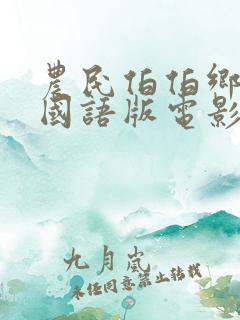 農民伯伯鄉
國語版電影
九月嵐
未经同意禁止转载